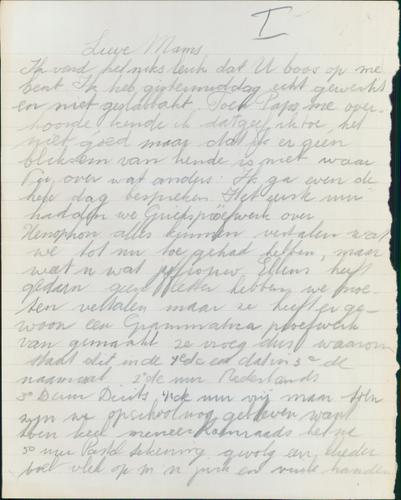 I
Lieve Mams
Ik vond het niks leuk dat U boos op me
bent. Ik heb gistermiddag echt gewerkt
en niet geplakt. Toen Papa me over-
hoorde kende ik dat geef ik toe, het
niet goed maar dat ik er geen
bliksem van kende is niet waar
over wat anders: Ik ga even de
hele dag bespreken. Het uur
hadden we Grieksproefwerk over
Xenophon alles kunnen vertalen wat
we tot nu toe gehad hebben, maar
wat n wat juffrouw Ellens heeft
gedaan geen letter hebben we moe-
ten vertalen maar ze heeft er ge-
woon een Grammatica proefwerk
van gemaakt ze vroeg dus waarom
staat dit in de 4e de en dat in 3e de
naamval 2e de uur Nederlands
3e Duits, 4de uur vrij maar toen
zijn we op school nog gebleven want
toen heel meneer Koenraads
5e uur tekening gevolg een
vlek op m n jurk en vuile handen